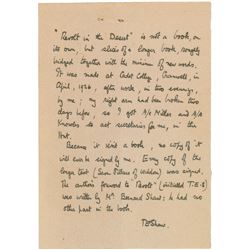 "Revolt in the Desert" is not a book, on
its own, but slices of a longer book, roughly
bridged together with the minimum of new words.
It was made at Cadet College, Cranwell, in
April, 1926, after work, in two evenings,
by me; my right arm had been broken two
days before, so I got A/A Miller and A/A
Knowles to act secretaries for me, in this
Hut.
Because it isn't a book, no copy of it
will ever be signed by me. Every copy of the
longer text (Seven Pillars of Wisdom) was signed.
The author's foreword to "Revolt" (initialled T.E.S)
was written by Mr Bernard Shaw: he had no
other part in the book.
T E Shaw.